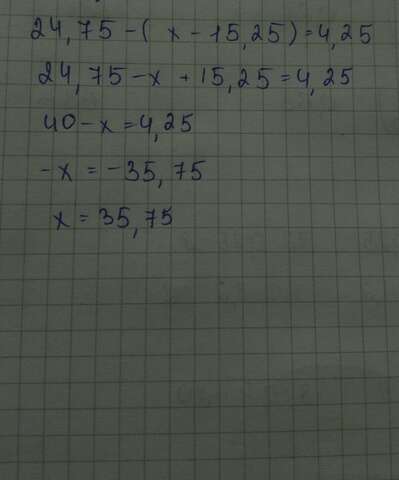 24,75-(x-15,25)=4,25
24,75-x+15,25=4,25
40-x=4,25
-x=-35,75
x=35,75